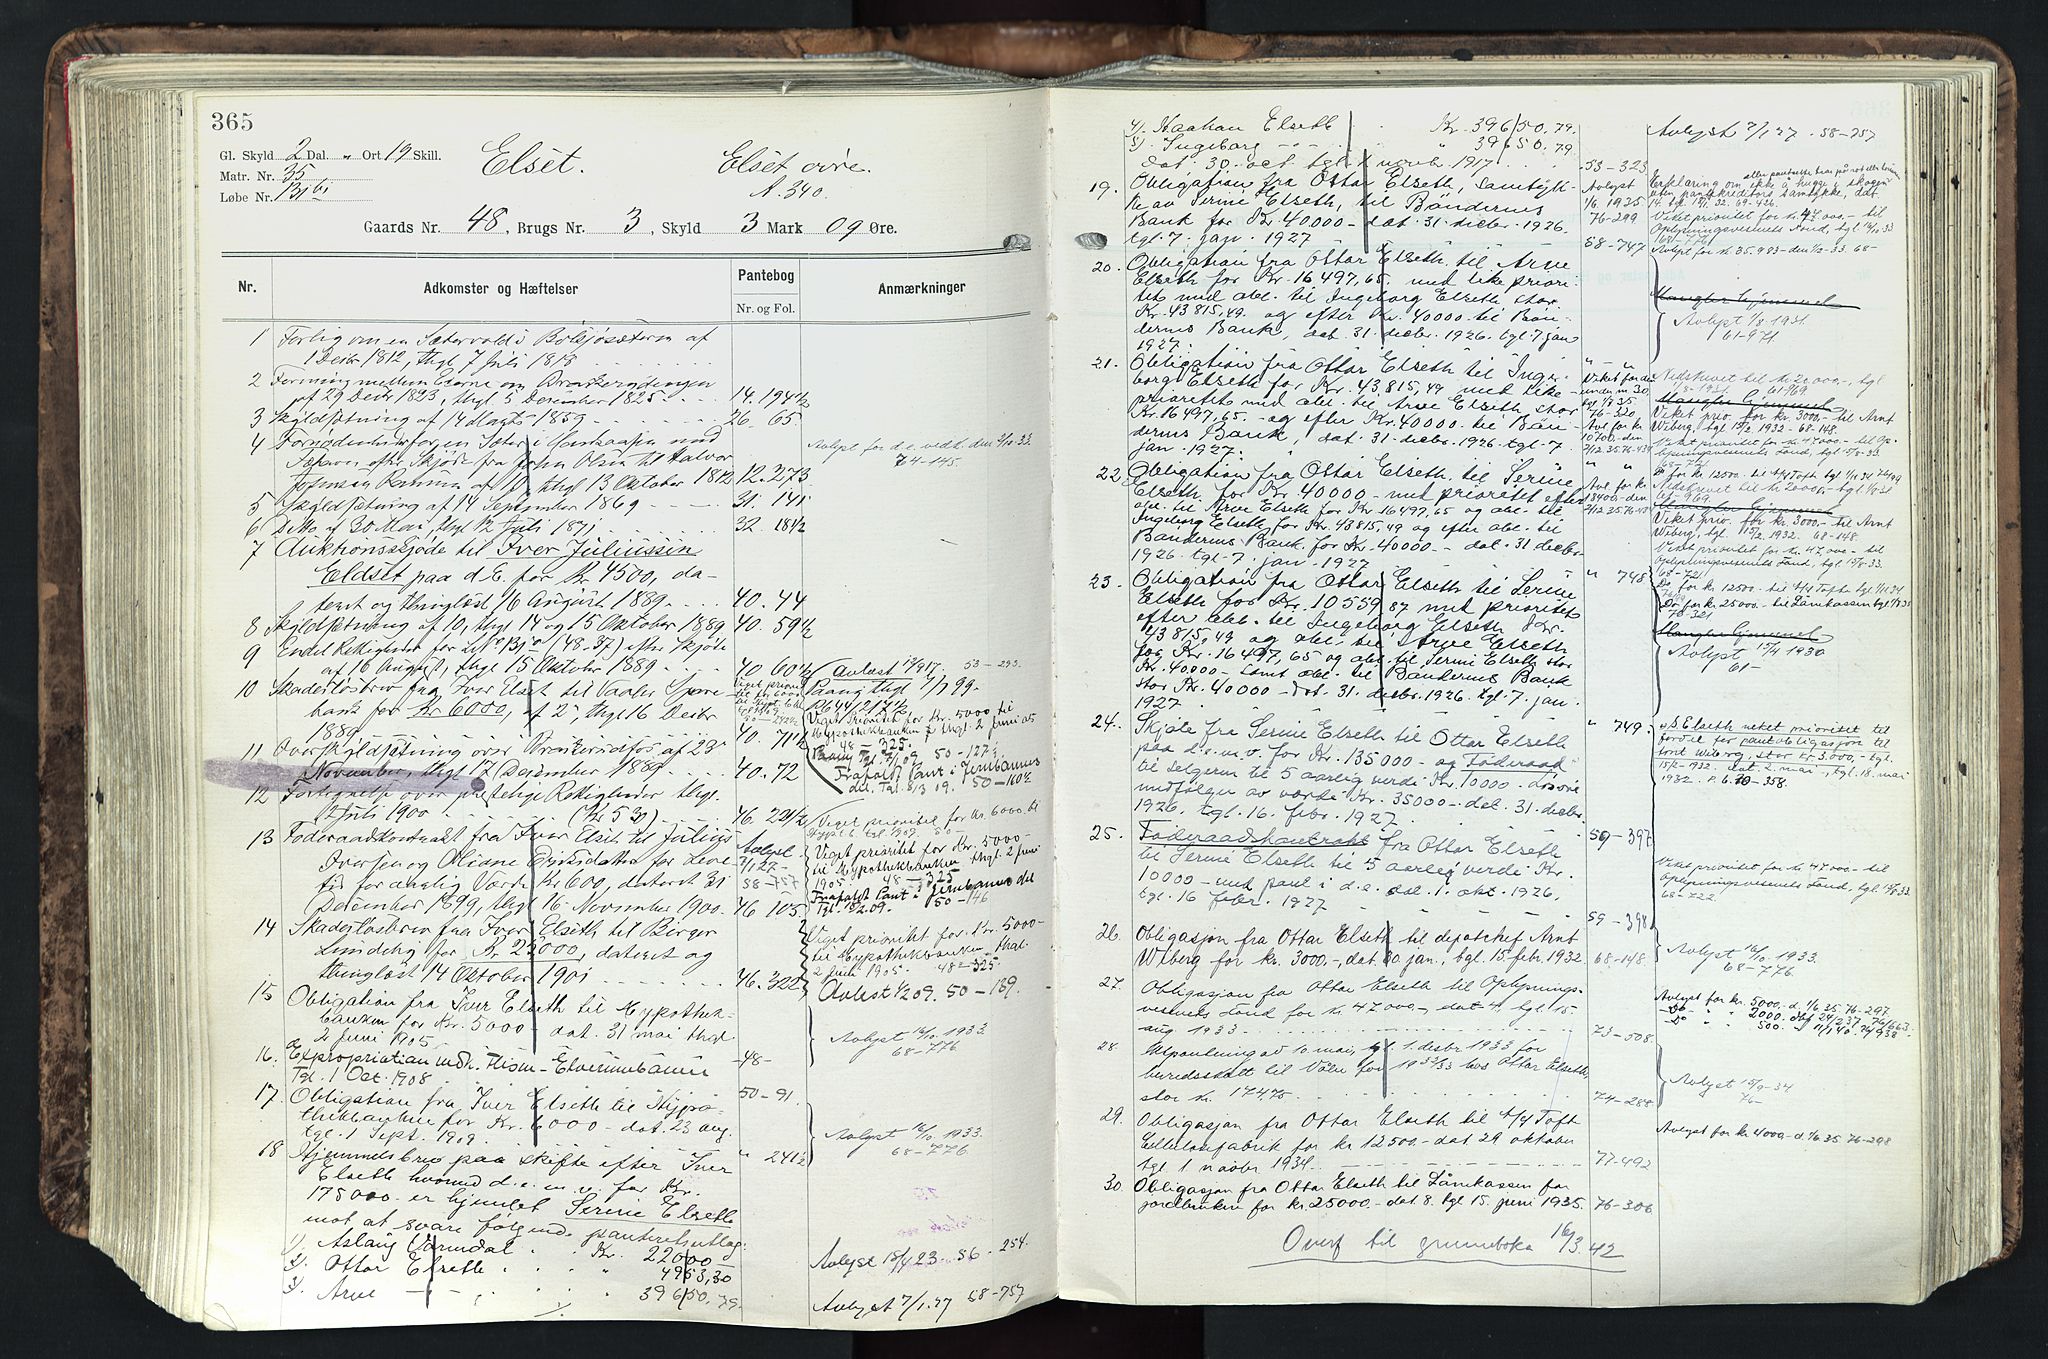 365
Gl. Skyld 2 Dal. " Ort 19 Skill.
Matr. Nr. 35
Løbe Nr. 131 b1
Elset. Elset øvre.
A. 340.
Gaards Nr. 48, Brugs Nr. 3, Skyld 3 Mark 09 Øre.
Nr. Adkomster og Hæftelser Pantebog Nr. og Fol. Anmærkninger
1 Forlig om en Sætervold i Bölsjösæteren af
1 Decbr 1812, thgl 7 Juli 1818
2 Forening mellem Eierne om
af 29 Decbr 1823, thgl 5 December 1825 14. 194½
3 Skyldsætning af 14 Marts 1859 26. 65
4 en Sæter i med
efter Skjøde fra John Olsen til Halvor
Johnsen af 10, thgl 13 Oktober 1812 12. 273
Avlyst for d.e. vedk. den 3/10 33.
74-145.
5 Skyldsætning af 14 September 1869 31. 141
6 Ditto af 30 Mai, thgl 12 Juli 1871 32. 18½
7 Auktionsskjøde til Iver Juliussen
Eldset paa d.E. for Kr 4500, da-
teret og thinglæst 16 August 1889 40. 44
8 Skyldsætning af 10, thgl 14 og 15 Oktober 1889 40. 59½
9 Endel Rettigheder for (48-37) efter Skjøde
af 16 August, thgl 15 Oktober 1889 40 60½
10 Skadesløsbrev fra Iver Elset til Vaaler Spare-
bank for Kr 6000, af 2', thgl 16 Decbr
1889 40. 71½
Avlæst 12/9 17. 53-293.
Viget Prioritet for Kr. 5000 til
Hypothekbanken thgl. 2 Juni 05
48 - 325.
Frafaldt Pant i Jernbannus
del. Tgl. 8/3 09. 50-160½
11 Overskyldsætning over af 23
November, thgl 17 December 1889 40. 72
12 Fortegnelse over Rettigheder thgl.
12 Juli 1900 (Kr 5 30) 46. 221½
13 Føderaadskontrakt fra Iver Elset til Julius
Iversen og Oliane Eriksdatter for Leve-
tid for aarlig Værdi Kr 600, dateret 31
December 1899, thgl 16 November 1900 46 105
Avlyst
7/1 27
58-757
Viget prioritet for Kr. 6000 til
Viget prioritet for Kr. 5000-
til Hypothekbanken thgl. 2 Juni
1905 48 - 325
Frafaldt Pant i Jernbannus del
50-146
14 Skadesløsbrev fra Iver Elseth til Birger
Lundebÿ for Kr 25000, dateret og
thinglæst 14 Oktober 1901 46. 322
Viget prioritet for Kr. 5000-
til Hypothekbanken thgl.
2 Juni 1905. 48-325.
Avlæst 1/2 09. 50-189.
15 Obligation fra Iver Elseth til Hypothek-
banken for Kr. 5000- dat. 31 mai thgl
2 Juni 1905 48-
Avlyst 16/10 1933.
68-776
16. Expropriation vedk. Hjem-Elverumbanen
Tgl. 1 Oct. 1908. 50-91.
17. Obligation fra Iver Elseth til Hypo-
thekbanken for Kr. 6000- dat. 23 aug.
tgl. 1 Sept. 1909. " 241½
Avlyst 16/10 1933.
68-776
18 Hjemmelsbrev paa skifte efter Iver
Elseth hvorved d.e.m.v. for Kr.
175000 er hjemlet Serine Elseth
mot at svare følgende panteretsutlæg:
1). Aslaug Varmdal " Kr. 22000 -
2). Ottar Elseth " " 4953,30
3). Arve " 39650,79.
Avlyst 15/1 23 56-254.
Avlyst 7/1.27 58-757
4). Haakan Elseth Kr. 39650.79.
5). Ingeborg " 39650.79
dat. 30. oct. tgl. 1 novbr. 1917 53-323
Avlyst 7/1.27 58-757
19. Obligation fra Ottar Elseth, samtykk-
ke av Serine Elseth, til Bøndernes
Bank for Kr. 40000- dat. 31. decbr. 1926.
tgl. 7. jan. 1927 58-747
Avlyst
1/6 1935
76-299
Erklæring om ikke å hugge i skogen
uten pantkreditors samtykke, dat.
Veket prioritet for kr. 47000.- til
Oplysningsvesenets Fond, tgl 14/10 33
68-776
20. Obligation fra Ottar Elseth til Arve
Elseth for Kr. 16497,65. med like priori-
tet med obl. til Ingeborg Elseth stor
Kr. 43815,49. og efter Kr. 40000 til Bøn-
dernes Bank, dat. 31. decbr. 1926. tgl. 7. jan
1927. " "
Mangler hjemmel
Avlyst 1/8 1931.
61-971
21. Obligation fra Ottar Elseth til Inge-
borg Elseth for Kr. 43815,49 med like
prioritet med obl. til Arve Elseth stor
Kr. 16497,65.- og efter Kr. 40000 til Bøn-
dernes Bank, dat. 31. decbr. 1926. tgl. 7.
jan. 1927. " "
Nedskrevet til kr. 20000.-, tgl
Mangler hjemmel
Veket prio. for kr. 3000,- til Arnt
Wiberg, tgl. 15/2. 1932 - 68-148.
Veket prioritet for kr. 47000.- til Op-
lysningsvesenets Fond, tgl. 15/8-33.
22. Obligation fra Ottar Elseth til Serine
Elseth for Kr. 40000.- med prioritet efter
obl. til Arve Elseth for Kr. 16497,65 og obl. til
Ingeborg Elseth for Kr. 43815,49 og efter obl. til
Bøndernes Bank for Kr. 40000.- dat. 31 decbr.
1926. tgl. 7. jan. 1927 " 748
Mangler hjemmel
Veket prio. for kr. 3000.- til Arnt
Wiberg, tgl. 15/2. 1932. 68-148.
Veket prioritet for kr. 47000.- til
Oplysningsvesenets Fond, tgl. 15/8 33.
68-721
23. Obligation fra Ottar Elseth til Serine
Elseth for Kr. 10559,87 med prioritet
efter obl. til Ingeborg Elseth Kr.
43815,49 og obl. til Arve Elseth
for Kr. 16497,65 og obl. til Serine Elseth stor
Kr. 40000- samt obl. til Bøndernes Bank
stor Kr. 40000 - dat. 31. decbr. 1926. tgl. 7. jan.
1927. " 749.
Do. for kr. 12500 til A/S Toft
Do. for kr. 25000.- til Lånekassen
Mangler hjemmel
Avlyst 15/4 1930
61-
24. Skjøte fra Serine Elseth til Ottar Elseth
paa d.e.m.v. for Kr. 135000 - og Føderaad
til selgeren til 5 aarlig verdi Kr. 10000 - Løsøre
medfølger av værdi Kr. 35000 - dat. 31. decbr.
1926. tgl. 16. febr. 1927 59-397
S. Elseth veket prioritet til
fordel for pantobligasjon til
Arnt Wiberg, stor kr. 3.000,- tgl.
15/2-1932. Dat. 2. mai, tgl. 18. mai
1932. P. b. 70-358.
25. Føderaadskontrakt fra Ottar Elseth
til Serine Elseth til 5 aarleg verdi Kr.
10000 - med pant i d.e. dat. 1. okt. 1926.
tgl. 16 febr. 1927 59-398
Veket prioritet for kr. 47000.- til
Oplysningsvesenets Fond, tgl. 15/8 33.
68-722.
26. Obligasjon fra Ottar Elseth til depotchef Arnt
Wiberg for kr. 3000.-, dat 30 jan., tgl. 15. febr. 1932. 68-148.
Avlyst 16/10 1933.
68-776
27. Obligasjon fra Ottar Elseth til Oplysnings-
vesenets Fond for kr. 47000.- dat 4, tgl. 15-
aug. 1933. 73-508.
Avlyst for kr. 5000.- d. 1/6 35. 76-297.
- Do - " " 2000.
- Do " " 500.
28. Utpantning av 10. mai, tgl. 1. desbr 1933 for
herredsskatt til Våler for 1932/33 hos Ottar Elseth,
stor kr. 174,75. 74-288
Avlyst 15/9-34
76-
29. Obligasjon fra Ottar Elseth til A/S Toft
Cellulosefabrik for kr 12500.- dat 29 oktober
tgl 1 novbr. 1934. 77-492
Avlyst for kr. 4000.- d. 1/6 35 76-298
30. Obligasjon fra Ottar Elseth til Lånekassen for
jordbruken for kr. 25000.- dat. 8. tgl 15. juni 1935. 76-306
Overf til grunnboka 16/3.42